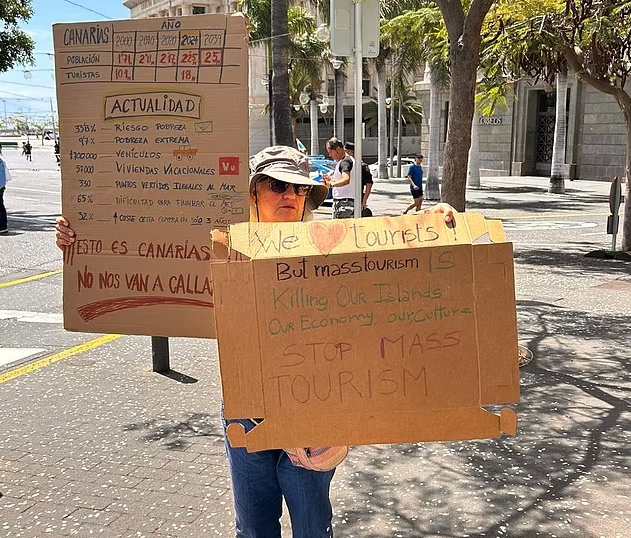 AÑO
CANARIAS 2000 2010 2020 2024 2039
POBLACIÓN
TURISTAS
ACTUALIDAD
33'8% — RIESGO POBREZA
POBREZA EXTREMA
VEHÍCULOS
VIVIENDAS VACACIONALES VU
330 PUNTOS VERTIDOS ILEGALES AL MAR
65% DIFICULTAD PARA FINALIZAR
32% COSTE CESTA COMPRA EN 3 AÑOS
¡¡ESTO ES CANARIAS
NO NOS VAN A CALLA
We ❤ tourists!
But mass tourism IS
Killing Our Islands
Our Economy, our culture
STOP MASS
TOURISM